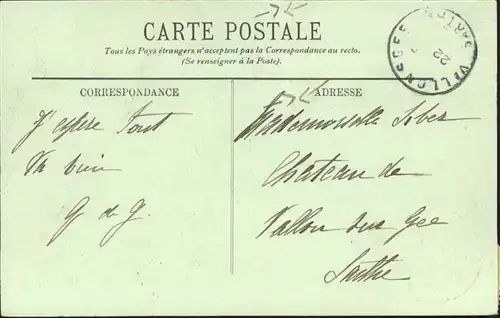 CARTE POSTALE
Tous les Pays étrangers n'acceptent pas la Correspondance au recto.
(Se renseigner à la Poste).
CORRESPONDANCE
J'espère tout
va bien
G de G.
ADRESSE
Mademoiselle
Chateau de
Vallon sur Gée
Sarthe
VALLON S GEE
SARTHE
22